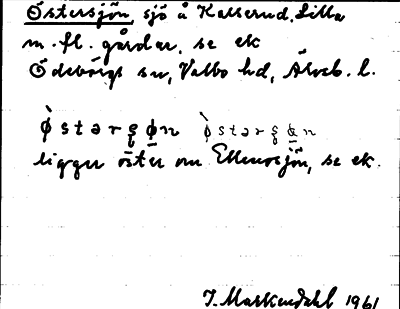 Östersjön, sjö å Kasserud, Lilla
m. fl. gårdar, se ek
Ödeborgs sn, Valbo hd, Älvsb. l.
ǿstarʂøn ǿstarʂøn
ligger öster om Ellenösjön, se ek.
J. Markendahl 1961